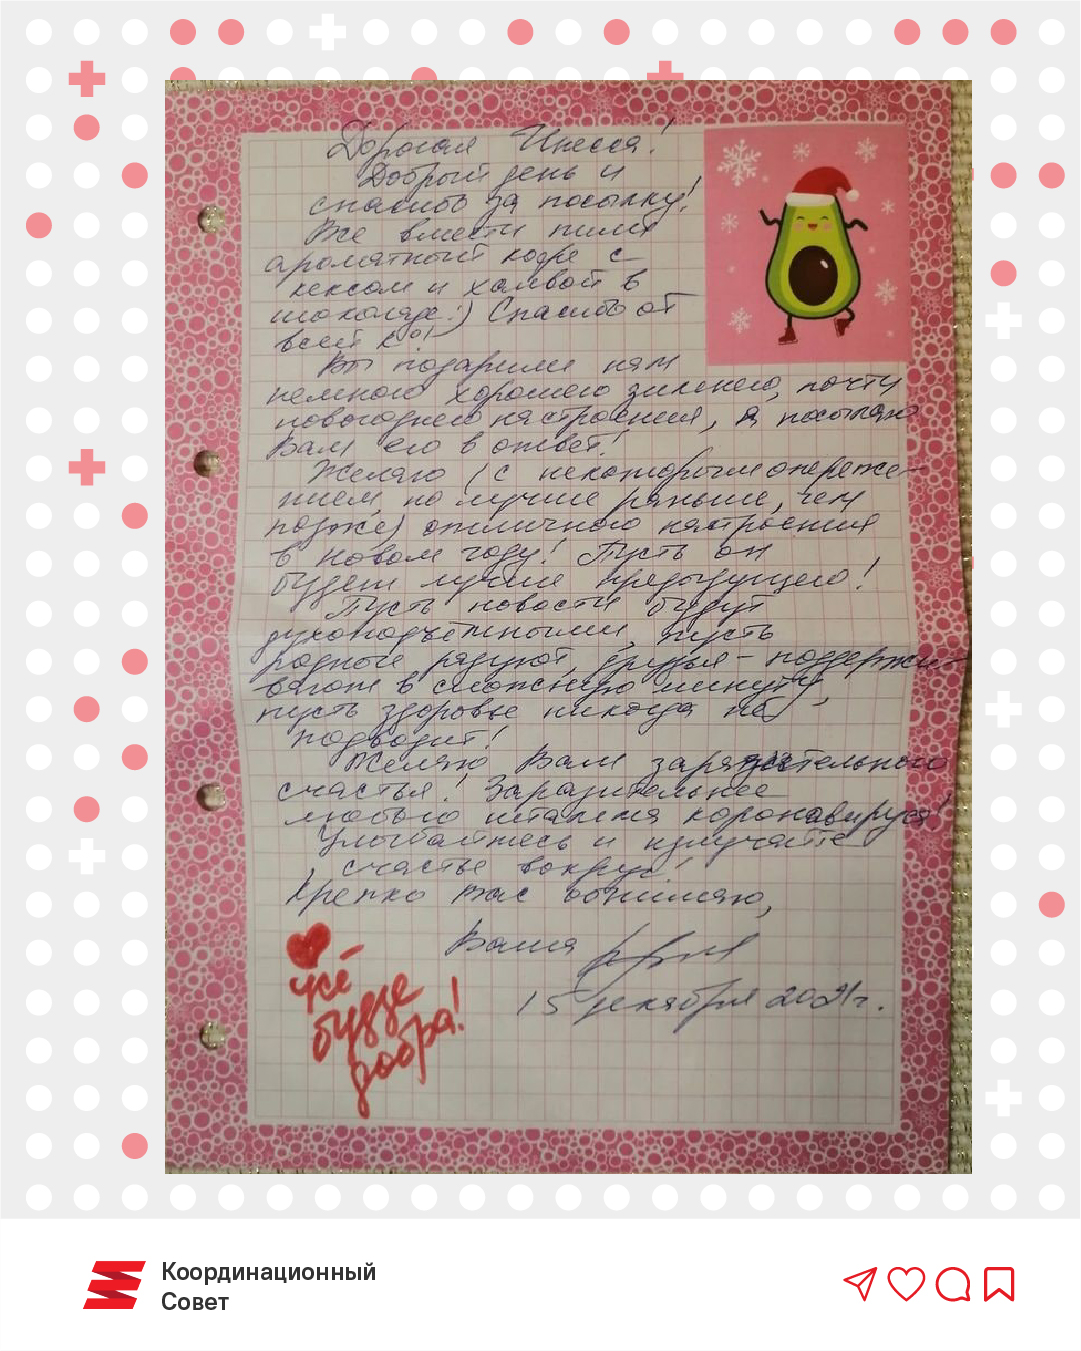 Дорогая Инесса!
Добрый день и
спасибо за посылку!
Все вместе пили
ароматный кофе с
кексом и халвой в
шоколаде :) Спасибо от
всей
Вы подарили нам
немного хорошего зимнего, почти
новогоднего настроения, я посылаю
Вам его в ответ!
Желаю (с некоторым опереже-
нием, но лучше раньше, чем
позже) отличного настроения
в Новом году! Пусть он
будет лучше предыдущего!
Пусть новости будут
духоподъёмными, пусть
родные радуют, друзья - поддержи-
вают в сложную минуту,
пусть здоровье никогда не
подводит!
Желаю Вам заразительного
счастья! Заразительнее
любого штамма коронавируса!
Улыбайтесь и излучайте
счастье вокруг!
Крепко Вас обнимаю,
Ваша
15 декабря 2021г.
усё
будзе
добра!
Координационный
Совет